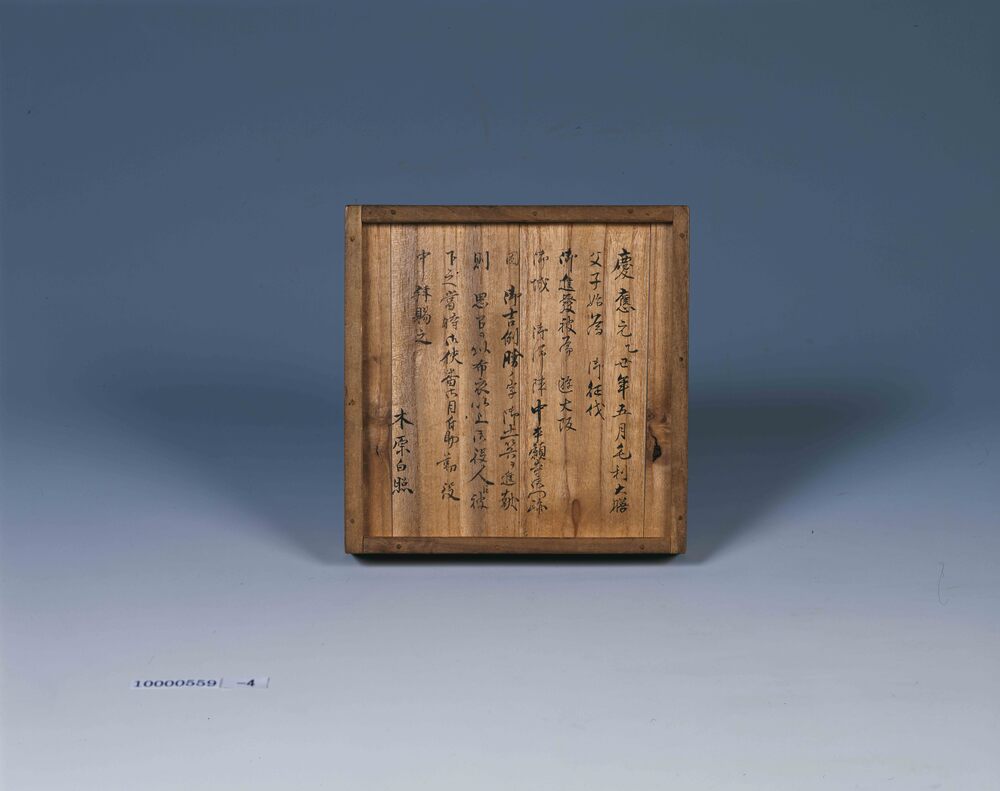 慶應元乙丑年五月毛利大膳
父子始為 御征伐
御進發被為 遊大坂
御城 御滞陣中本願寺
御吉例勝ノ字御土器ヲ進献
則 思召ヲ以布衣以上御役人江被
下之當時御使番
中拜賜之
木原白照
10000559 -4